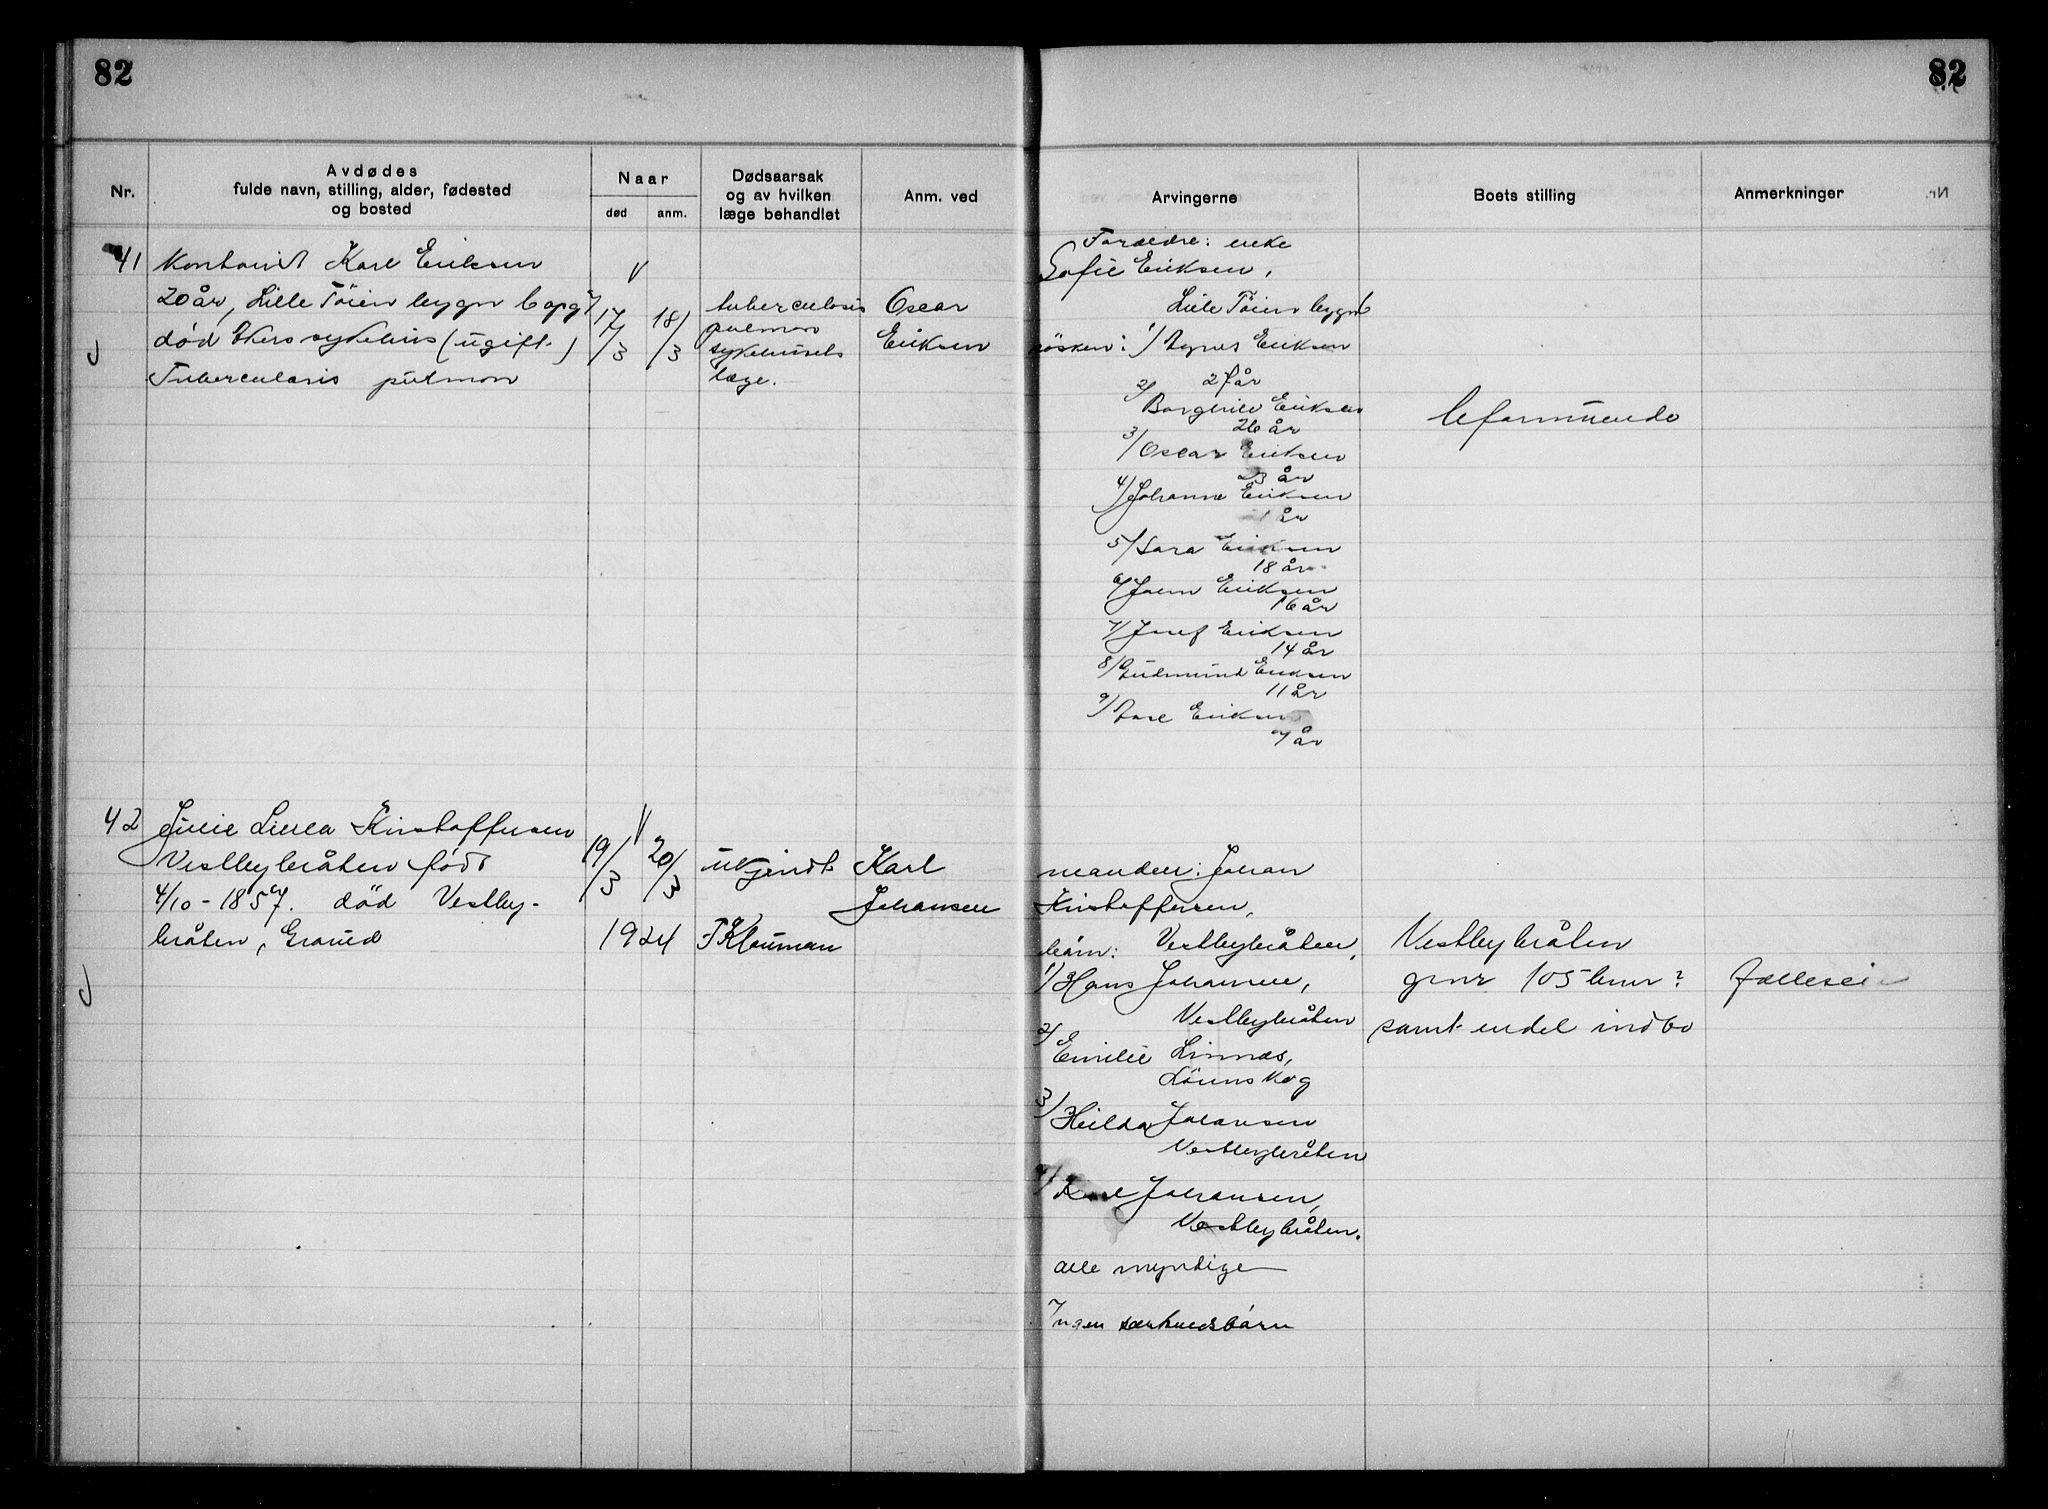 82
82
Nr.
Avdødes
fulde navn, stilling, alder, fødested
og bosted
Naar
død
anm.
Dødsaarsak
og av hvilken
læge behandlet
Anm. ved
Arvingerne
Boets stilling
Anmerkninger
41
Kontorist Karl Eriksen
20 år, Lille Töien bygn 6 opg 7
død Akers sykehus (ugift.)
Tuberculosis pulmon
17/3
18/3
tuberculosis
pulmon
sykehusets
læge.
Oscar
Eriksen
Forældre: enke
Sofie Eriksen,
Lille Töien bygn 6
søsken: 1/ Agnes Eriksen
27 år
2/ Borghild Eriksen
26 år
3/ Oscar Eriksen
23 år
4/ Johanne Eriksen
år
5/ Sara Eriksen
18 år
6/ John Eriksen
16 år
7/ Josef Eriksen
14 år
8/ Gudmund Eriksen
11 år
9/ Aase Eriksen
7 år
Uformuende
42
Julie Linea Kristoffersen
Vestbybråten født
4/10-1857. død Vestby-
bråten, Grorud
19/3
20/3
1924
ukjendt
T Klouman
Karl
Johansen
manden: Johan
Kristoffersen,
børn: Vestbybråten,
1/ Hans Johansen,
Vestbybråten
2/ Emilie Linnæs,
Lörenskog
3/ Hilda Johansen
Vestbybråten
4/ Karl Johansen,
Vestbybråten.
alle myndige
Ingen særkuldsbørn
Vestbybråten
gnr 105 bnr ?
samt endel indbo
fælleseie